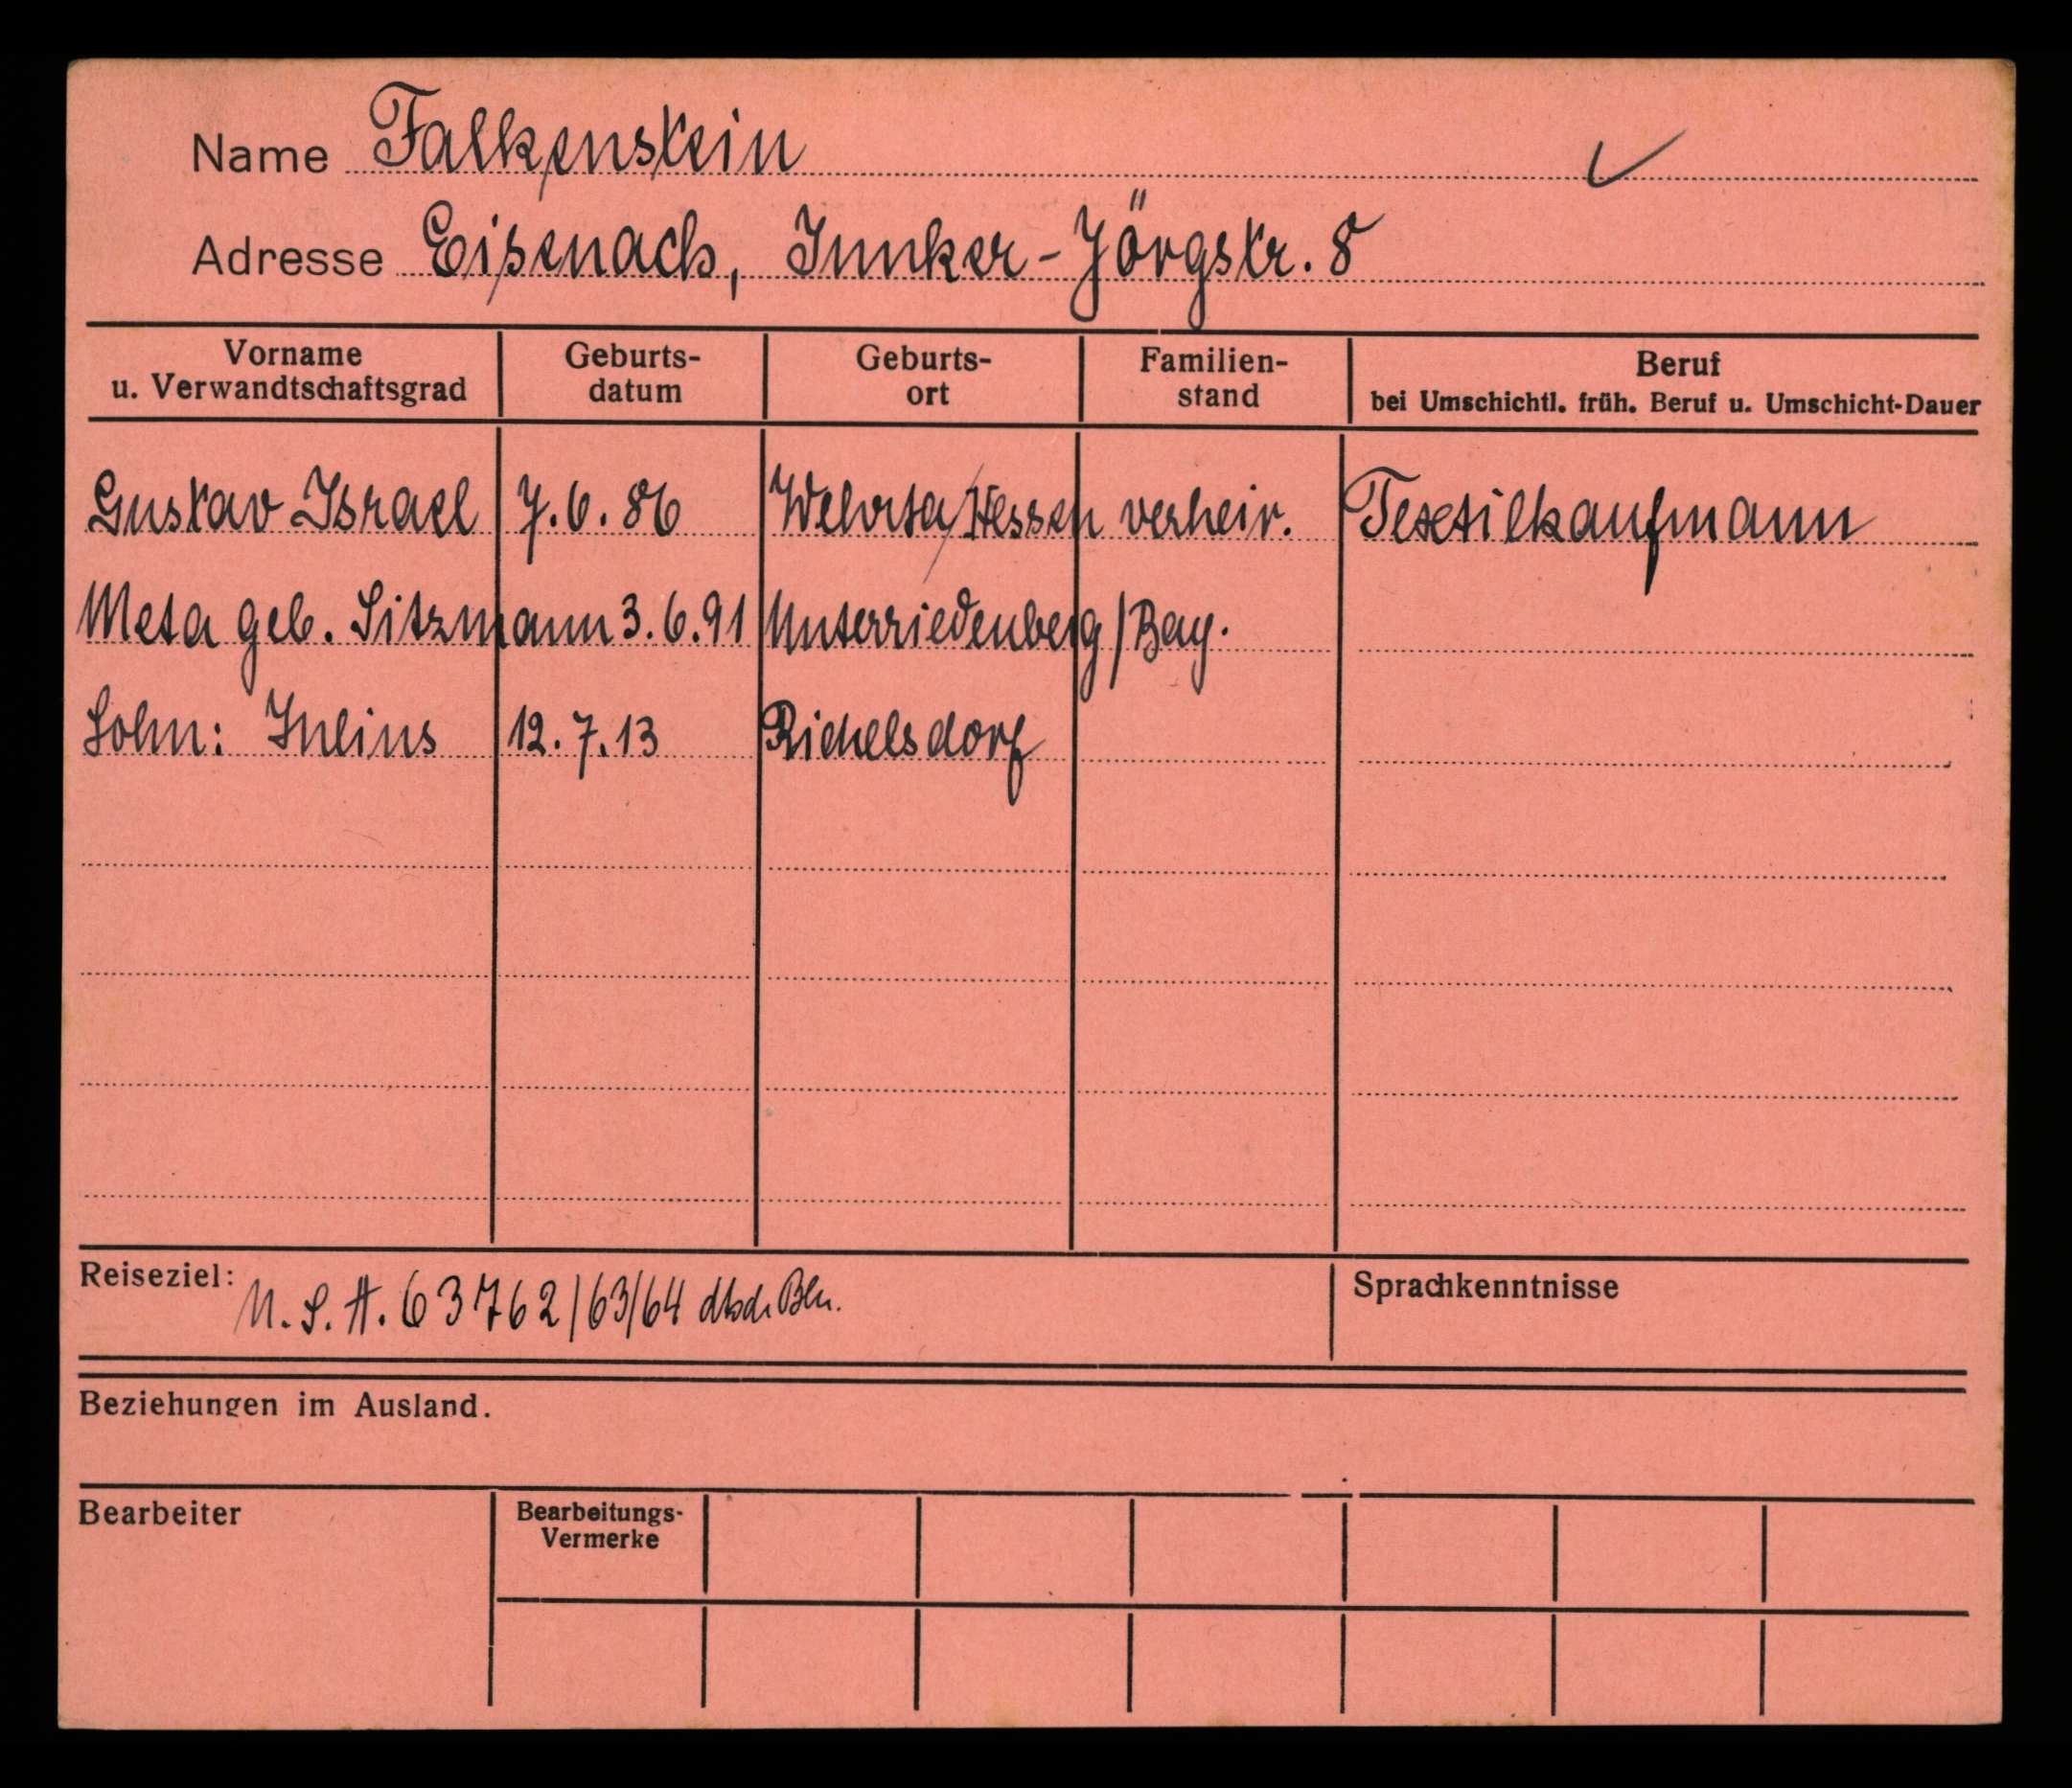 Name Falkenstein
Adresse Eisenach, Junker-Jörgstr. 8
Vorname u. Verwandtschaftsgrad Geburts-datum Geburts-ort Familien-stand Beruf bei Umschichtl. früh. Beruf u. Umschicht-Dauer
Gustav Israel 7.6.86 Wehrta/Hessen verheir. Textilkaufmann
Meta geb. Sitzmann 3.6.91 Unterriedenberg/Bay.
Sohn: Julius 12.7.13 Richelsdorf
Reiseziel: U.S.A. 63762/63/64 Bln. Sprachkenntnisse
Beziehungen im Ausland.
Bearbeiter Bearbeitungs-Vermerke